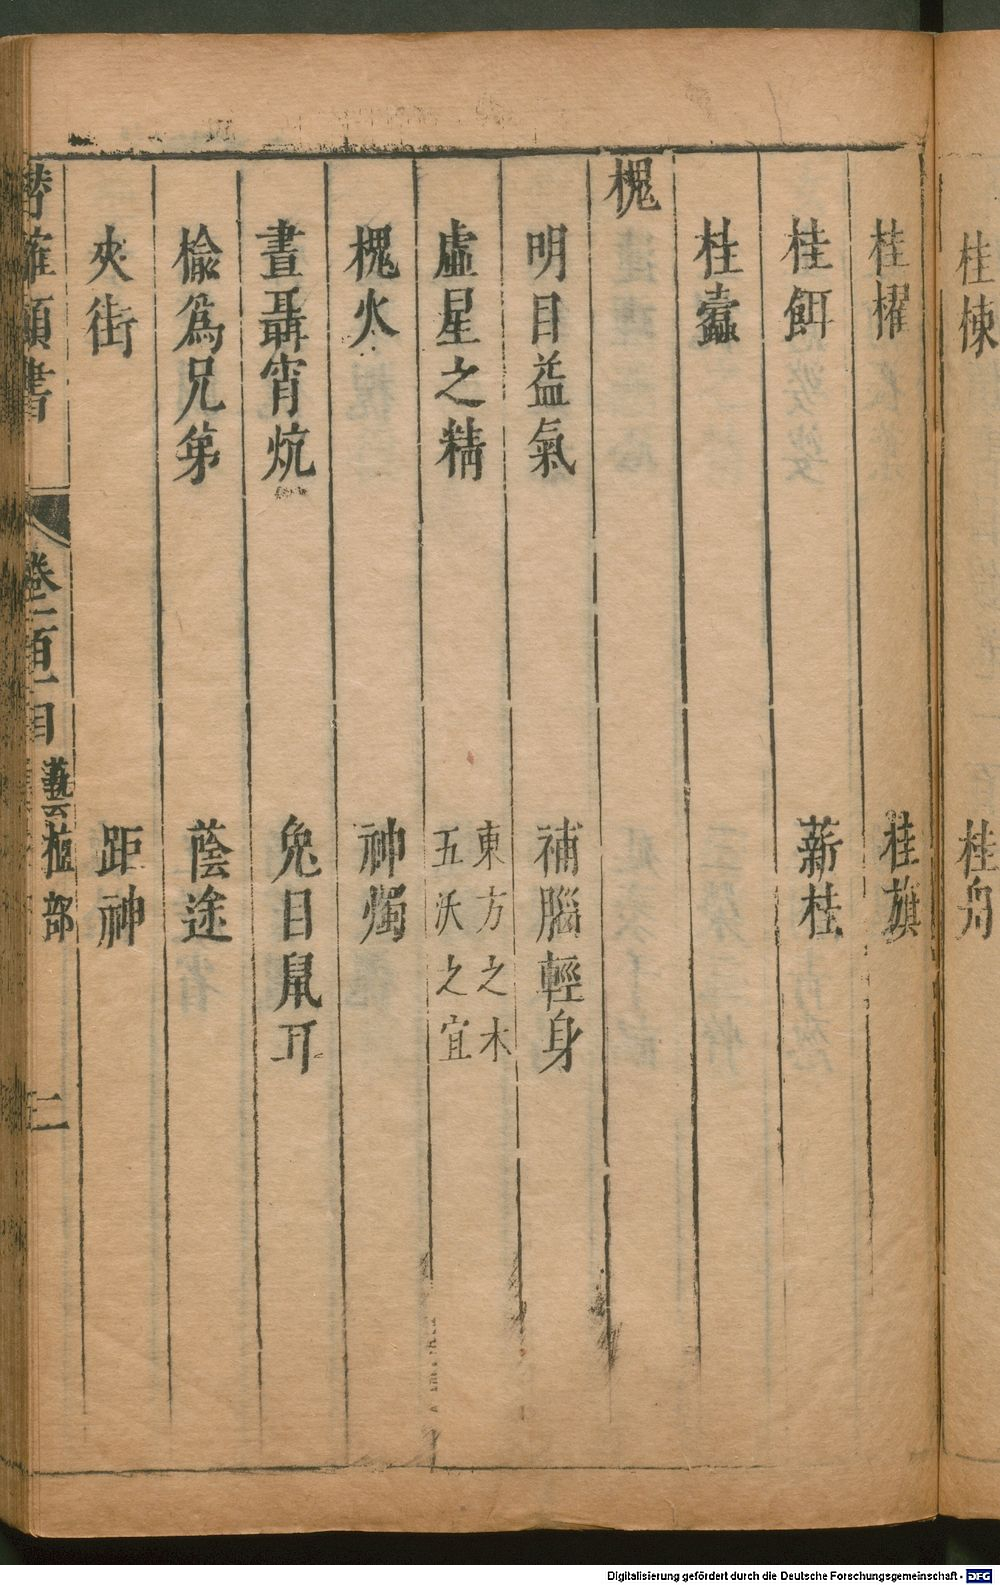 桂棟　桂舟
桂櫂　桂旗
桂餌　薪桂
桂蠹
槐
明目益氣　補腦輕身
虛星之精　東方之木
五沃之宜
槐火　神燭
晝聶宵炕　兔目鼠耳
榆爲兄弟　蔭途
夾街　距神
潛確類書
卷一百一目　藝植部　二
Digitalisierung gefördert durch die Deutsche Forschungsgemeinschaft - DFG